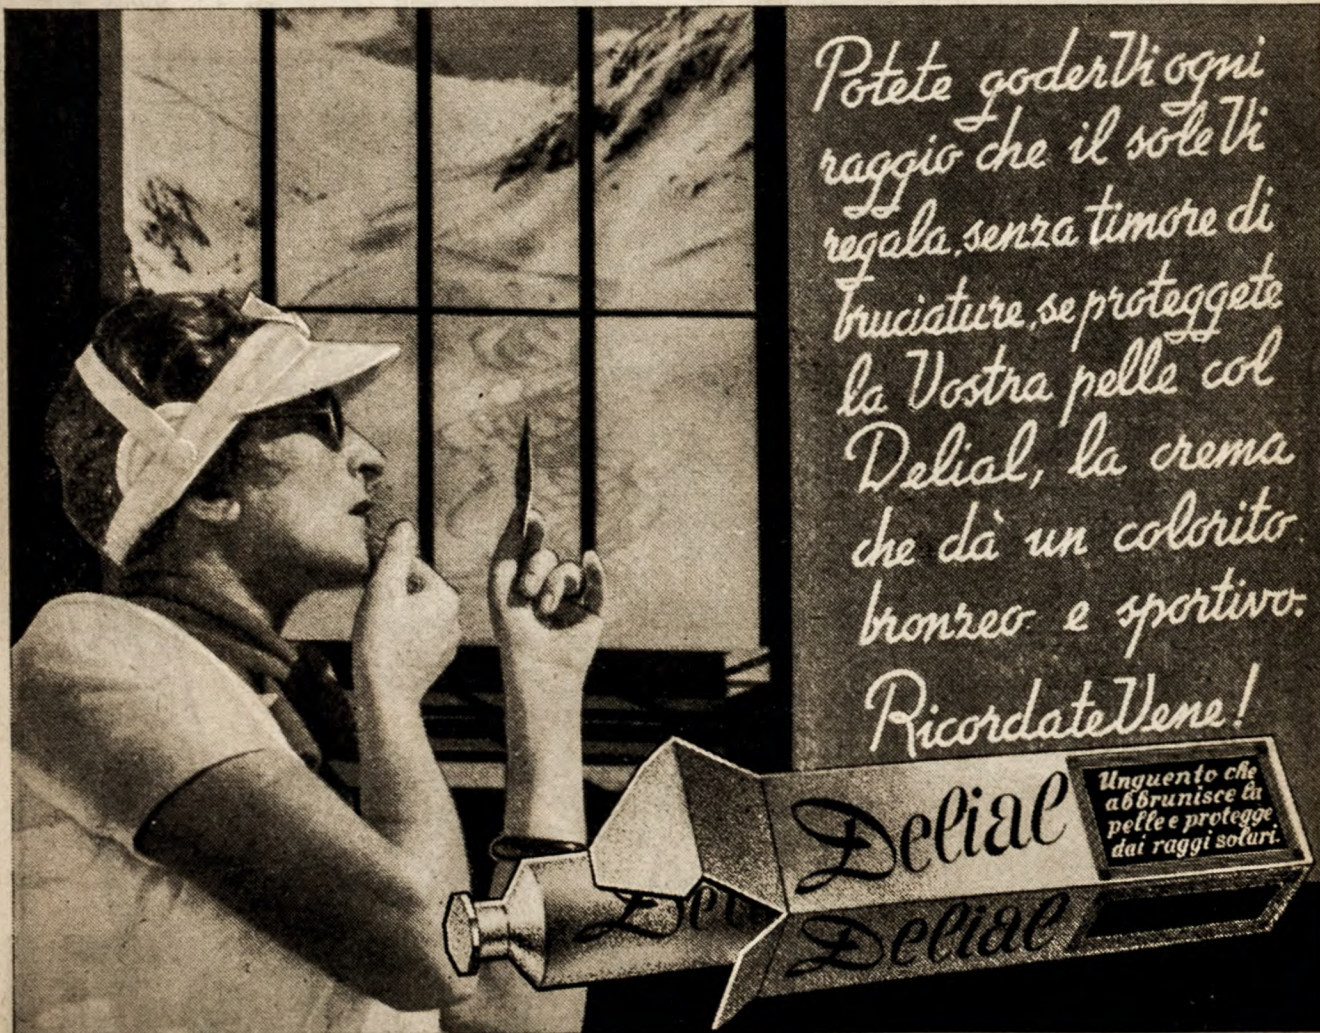 Potete goderVi ogni
raggio che il sole Vi
regala, senza timore di
bruciature, se proteggete
la Vostra pelle col
Delial, la crema
che dà un colorito
bronzeo e sportivo.
RicordateVene!
Delial
Unguento che
abbrunisce la
pelle e protegge
dai raggi solari.
Deli
Delial